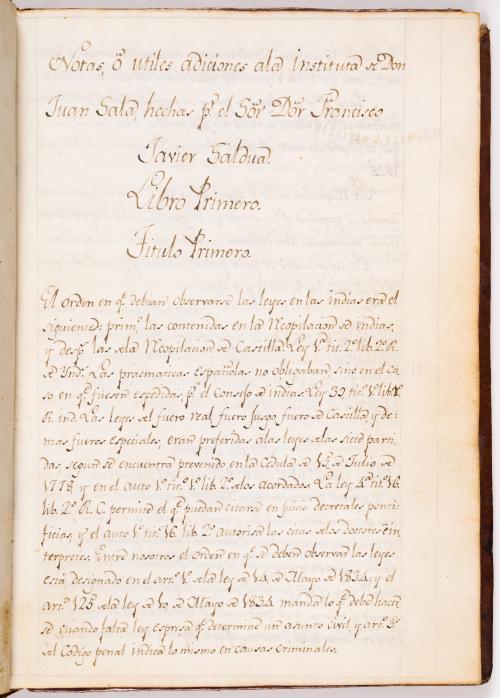 Notas, ó utiles adiciones ala instituta de Don
Juan Sala, hechas pr. el Sõr Dõr Francisco
Javier Saldua.
Libro Primero.
Titulo Primero.
El orden en q.e debian observarse las leyes en las indias era el
siguiente: prim.o las contenidas en la Recopilacion de indias,
y desp.s las dela Recopilacion de Castilla. Ley 1.a tit. 2.o lib. 2.o R.
de Ynd.s Las pracmaticas españolas no obligaban, sino en el ca-
so en q.e fuesen espedidas p.r el Consejo de indias. Ley 39 tit. 1.o lib. 2.o
R. ind. Las leyes del fuero real, fuero Jusgo, fuero de Castilla, y de-
mas fueros especiales, eran preferidas alas leyes delas siete parti-
das, segun se encuentra prevenido en la Cedula de 15 de Julio de
1778, y en el auto 1.o tit.o 1.o lib. 2.o delos acordados. La ley 4.a tit.o 16.
lib. 2.o R. C. permite el q.e puedan citarse en juicio decretales ponti-
ficias, y el auto 1.o tit.o 16. lib. 2.o autorisa las citas delos doctores é in-
terpretes. Entre nosotros el orden en q.e se deben observar las leyes
está designado en el art.o 1.o dela ley de 14 de Mayo de 1834, y el
art.o 125 dela ley de 10 de Mayo de 1834 manda lo q.e debe hacer-
se cuando falta ley espresa q.e determine un asunto civil, y art.o
del Codigo penal indica lo mismo en causas criminales.